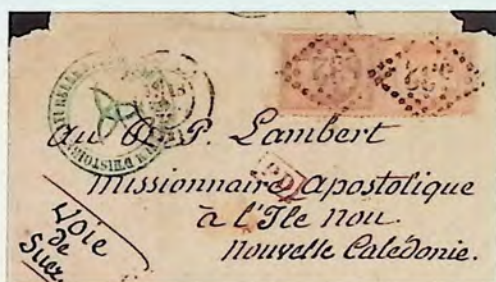 au R. P. Lambert
Missionnaire Apostolique
à l'Ile Nou.
Nouvelle Calédonie.
Voie
de
Suez.
PD
D'HISTOIRE